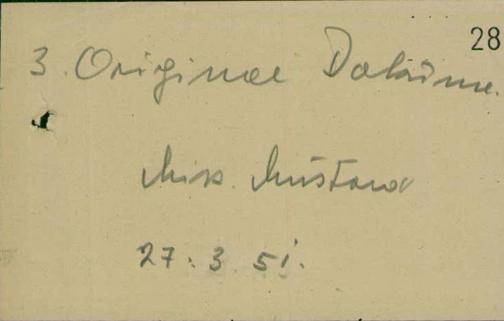 28
3. Original Dokum.
Miss. Mustard
27. 3. 51.